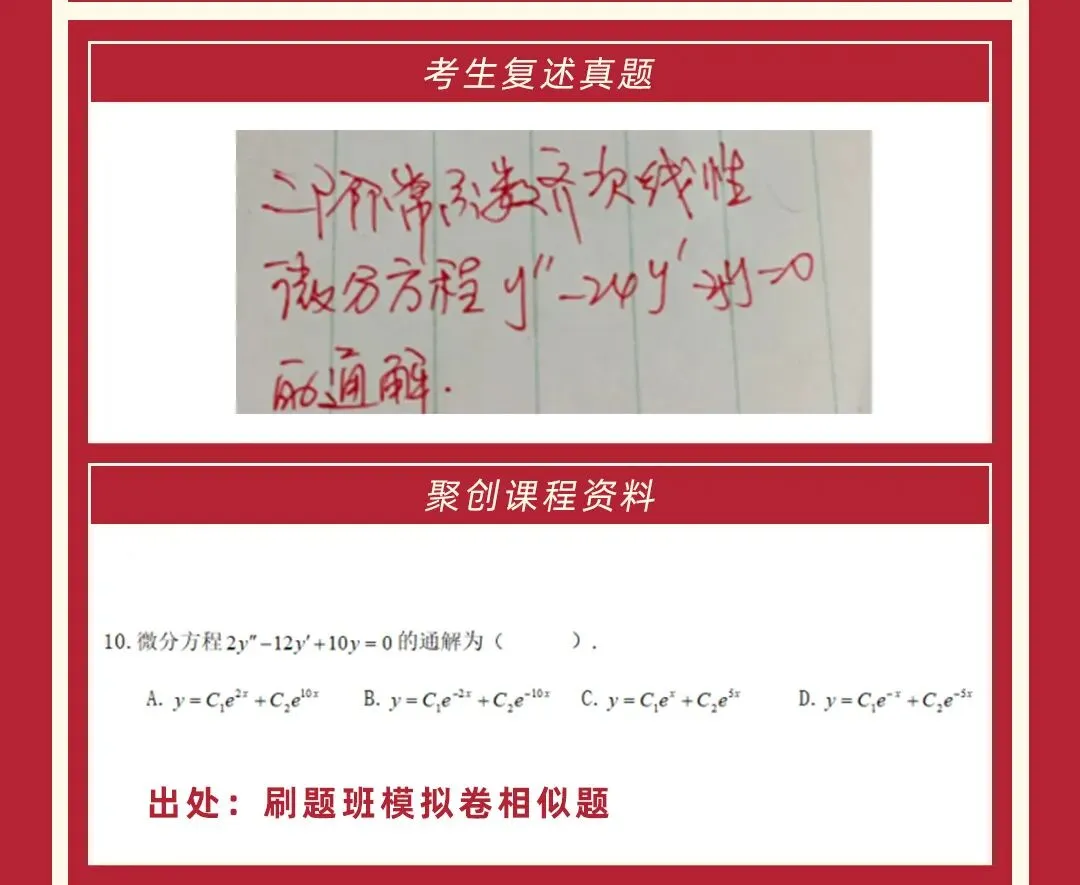 考生复述真题
二阶常系数齐次线性
微分方程 y″-24y′ y=0
的通解.
聚创课程资料
10. 微分方程 2y″-12y′+10y=0 的通解为（ ）.
A. y=C₁e²ˣ+C₂e¹⁰ˣ B. y=C₁e⁻²ˣ+C₂e⁻¹⁰ˣ C. y=C₁eˣ+C₂e⁵ˣ D. y=C₁e⁻ˣ+C₂e⁻⁵ˣ
出处：刷题班模拟卷相似题